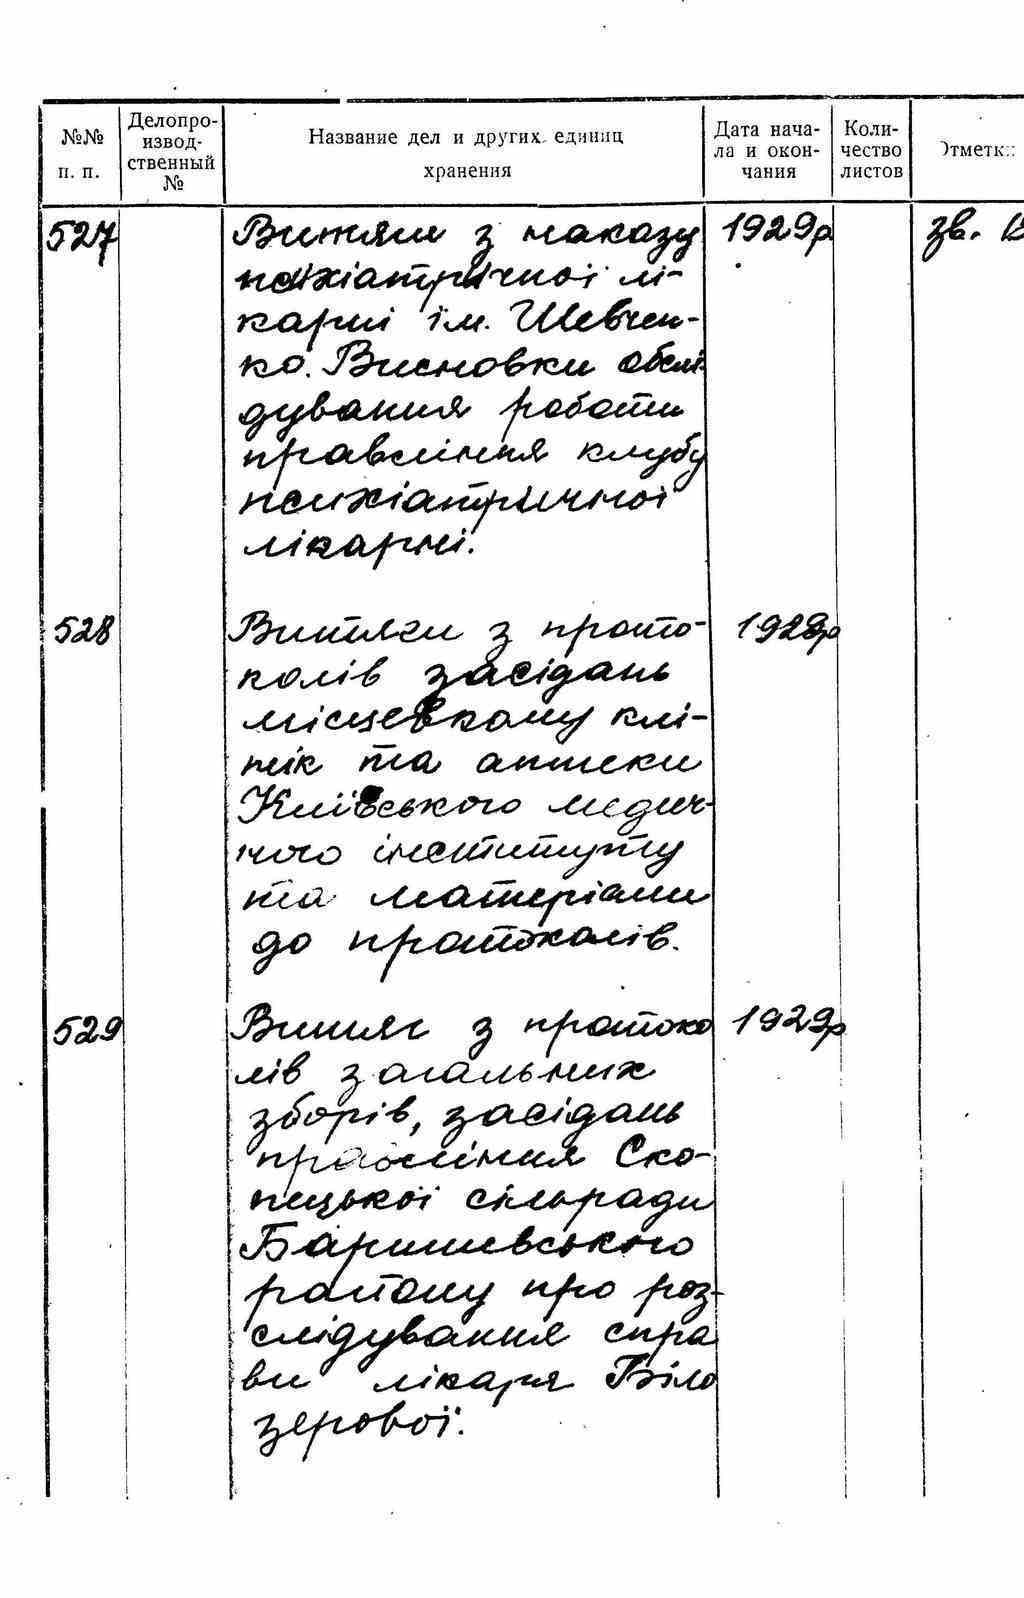 №№ п. п.
Делопро-
извод-
ственный
№
Название дел и других единиц
хранения
Дата нача-
ла и окон-
чания
Коли-
чество
листов
Отметк
527 Витяги з наказу 1929р зв.
психіатричної лі-
карні ім. Шевчен-
ко. Висновки обслі-
дування роботи
правління клубу
психіатричної
лікарні.
528 Витяги з прото- 1929р
колів засідань
місцевкому клі-
нік та аптеки
Київського медич-
ного інституту
та матеріали
до протоколів.
529 Витяг з протоко 1929р
лів загальних
зборів, засідань
правління Ско-
пецької сільради
Баришевського
району про роз-
слідування спра
ви лікаря Біло
зерової.